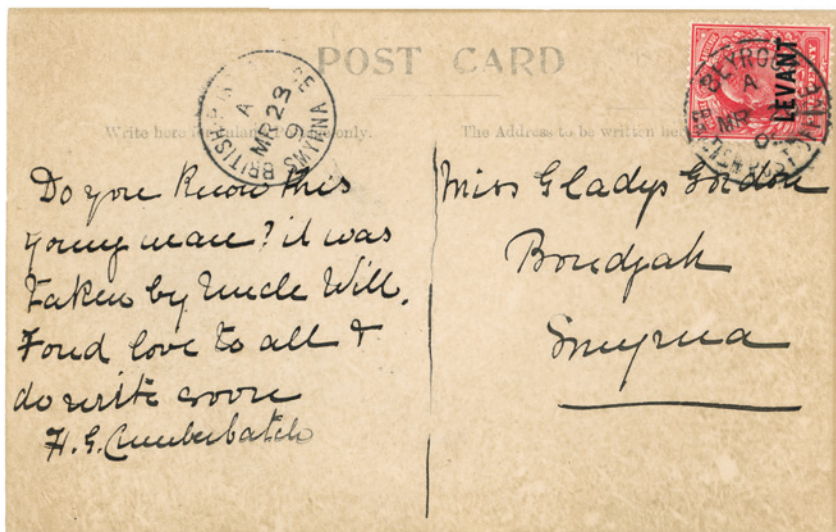 POST CARD
BRITISH
SMYRNA
A
MR 23
9
LEVANT
PENNY
BEYROUT
A
MR
BRITISH POST
Write here for Inland only.
The Address to be written here
Do you know this
young man? it was
taken by Uncle Will.
Fond love to all &
do write soon
H. G. Cumberbatch
Miss Gladys Gordon
Boudjah
Smyrna